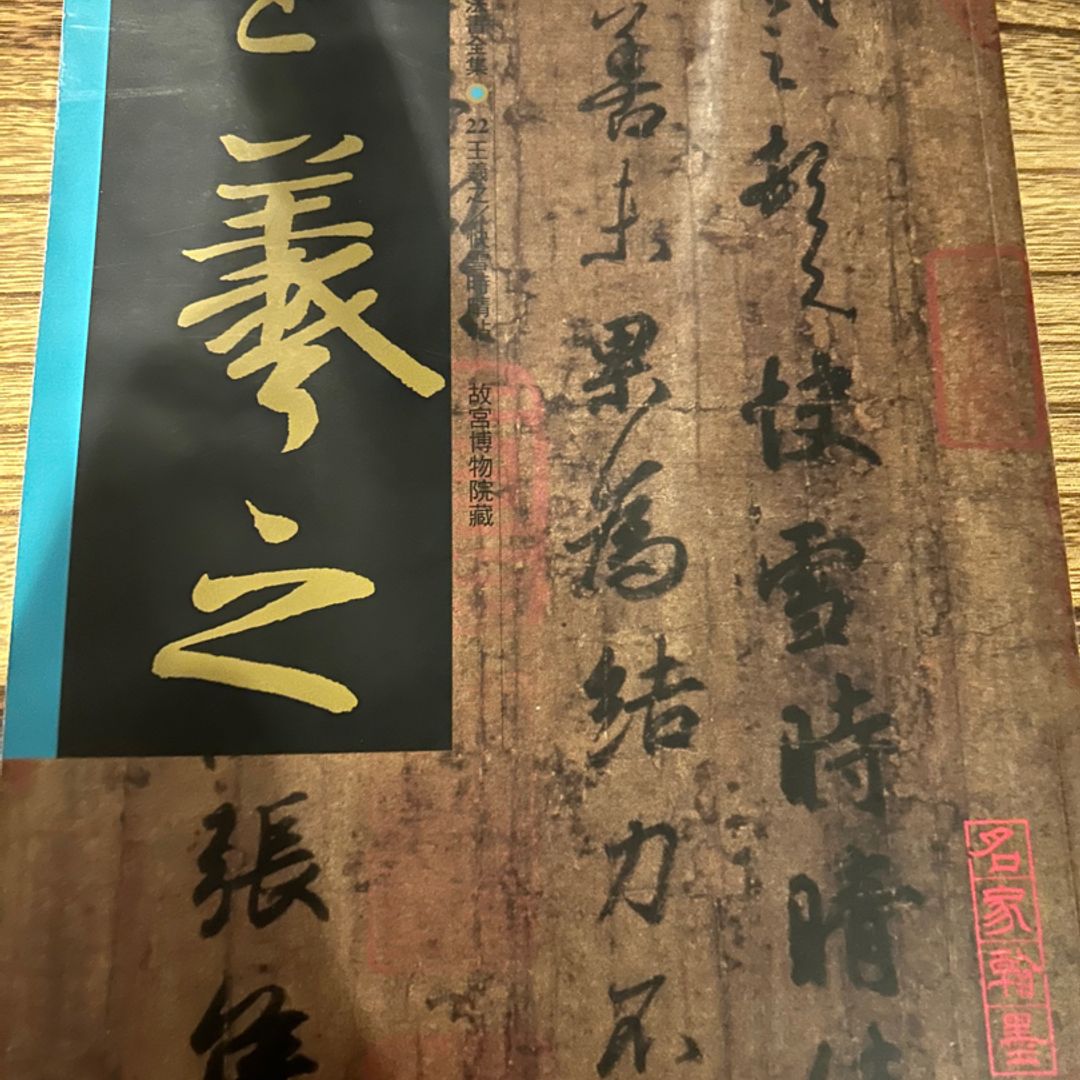 羲之
全集 22 王羲之/快雪時晴帖 故宮博物院藏
之頓首快雪時晴
善未果為結力不
張侯
名家翰墨